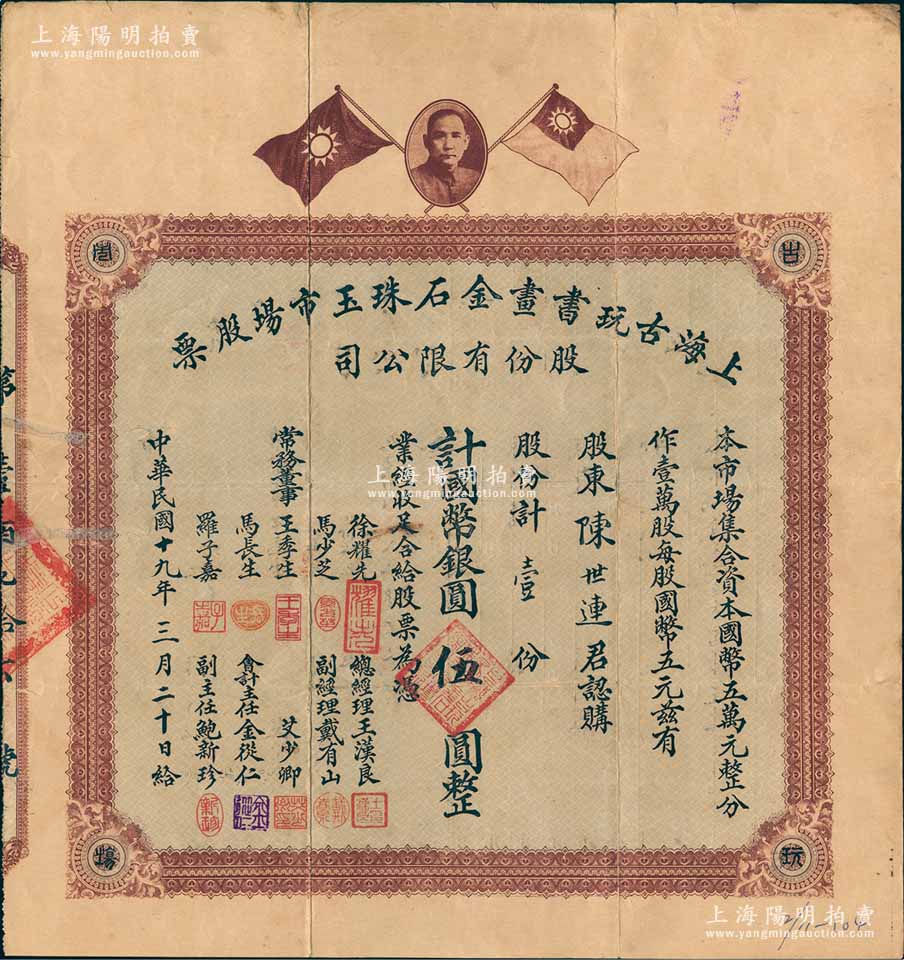 上海陽明拍賣
www.yangmingauction.com
古
玩
市
場
上海古玩書畫金石珠玉市場股票
股份有限公司
本市場集合資本國幣五萬元整分
作壹萬股每股國幣五元茲有
股東陳世連君認購
股份計壹份
計國幣銀圓伍圓整
業經收足合給股票為憑
常務董事
徐耀先
馬少芝
王季生
馬長生
羅子嘉
總經理王漢良
副經理戴有山
艾少卿
會計主任金從仁
副主任鮑新珍
中華民國十九年三月二十日給
第
號
上海陽明拍賣
www.yangmingauction.com
上海陽明拍賣
www.yangmingauction.com